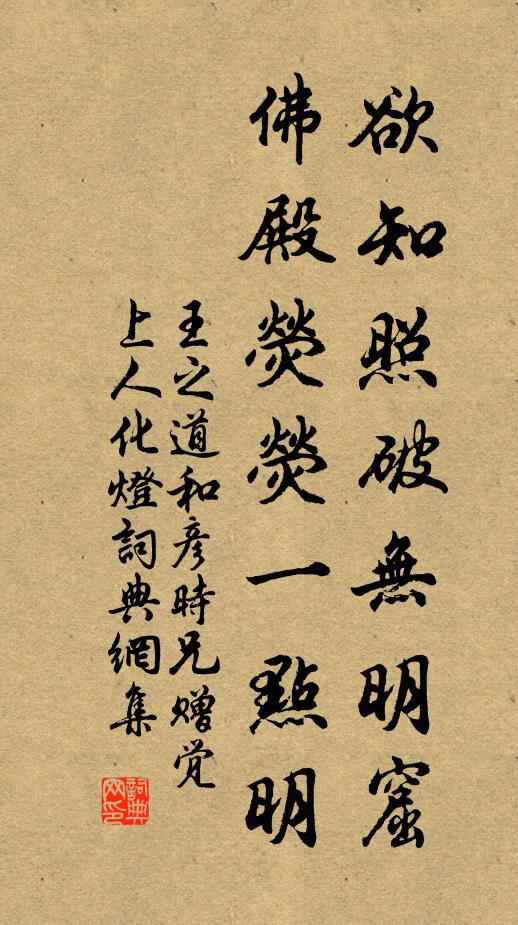 欲知照破無明窟
佛殿熒熒一點明
王之道和彥時兄赠觉
上人化燈詞典網集
詞典
网印